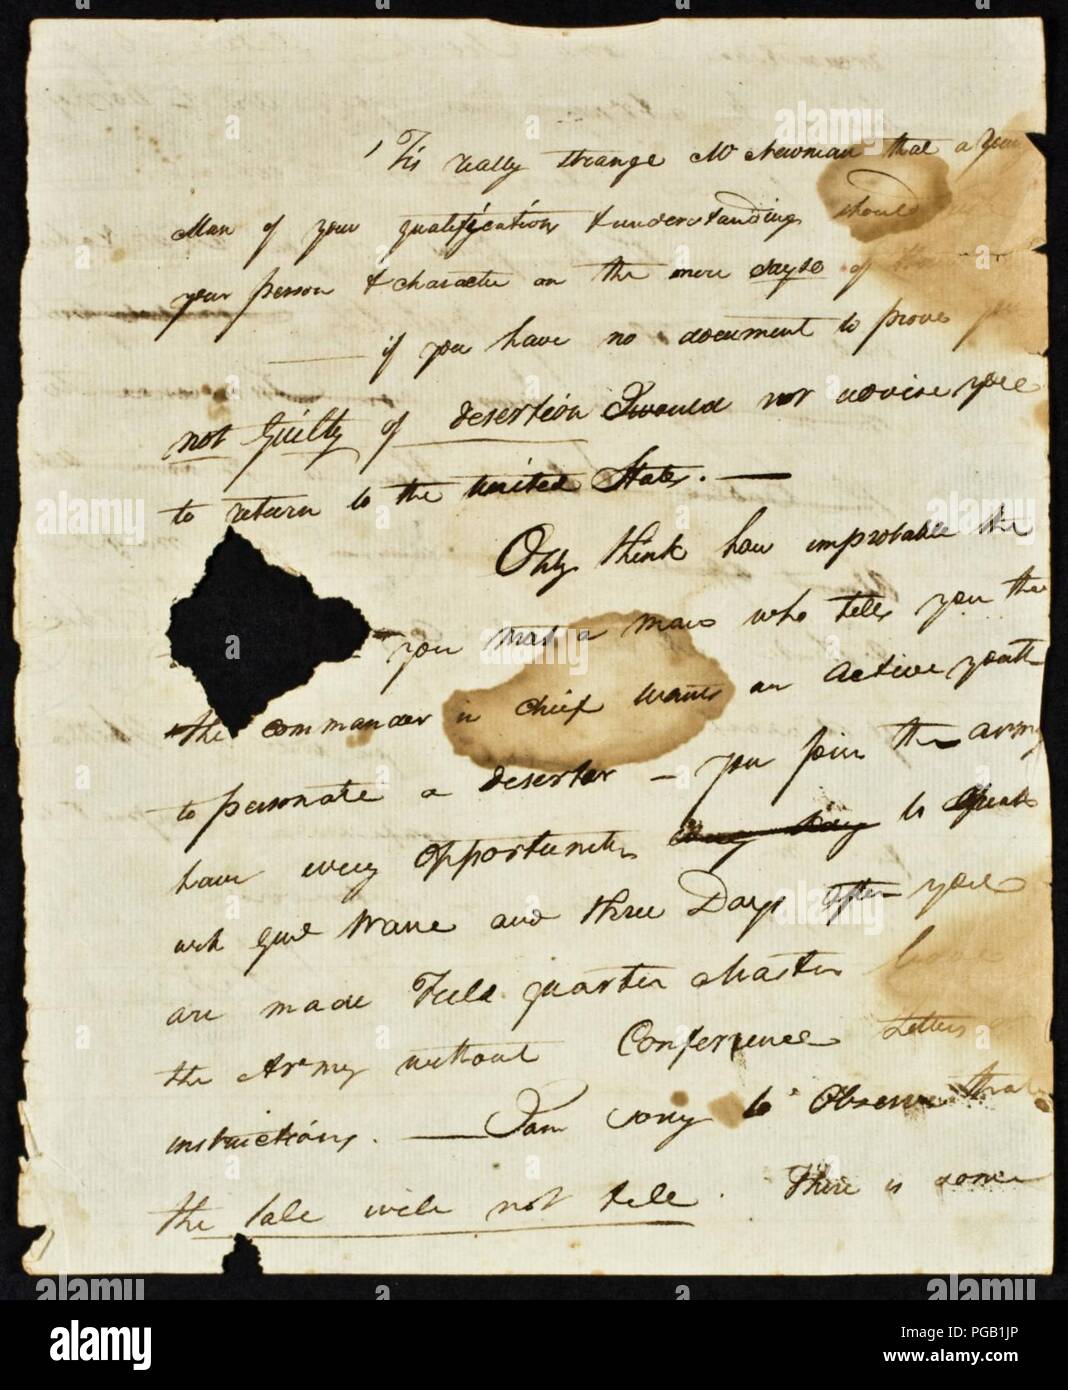 'Tis really strange Mr Newman that a young
Man of your qualifications & understanding should
your person & character on the mere say so of
if you have no document to prove you
not Guilty of desertion I would not advise you
to return to the United States. —
Only think how improbable the
you that a man who tells you that
the commander in chief wants an active youth
to personate a deserter — you join the army
have every opportunity to speak
with Genl Wane and three Days after you
are made Field quarter Master leave
the Army without Conference Letters
instructions. — I am sorry to observe that
the tale will not tell. There is some
alamy stock photo
PGB1JP
www.alamy.com